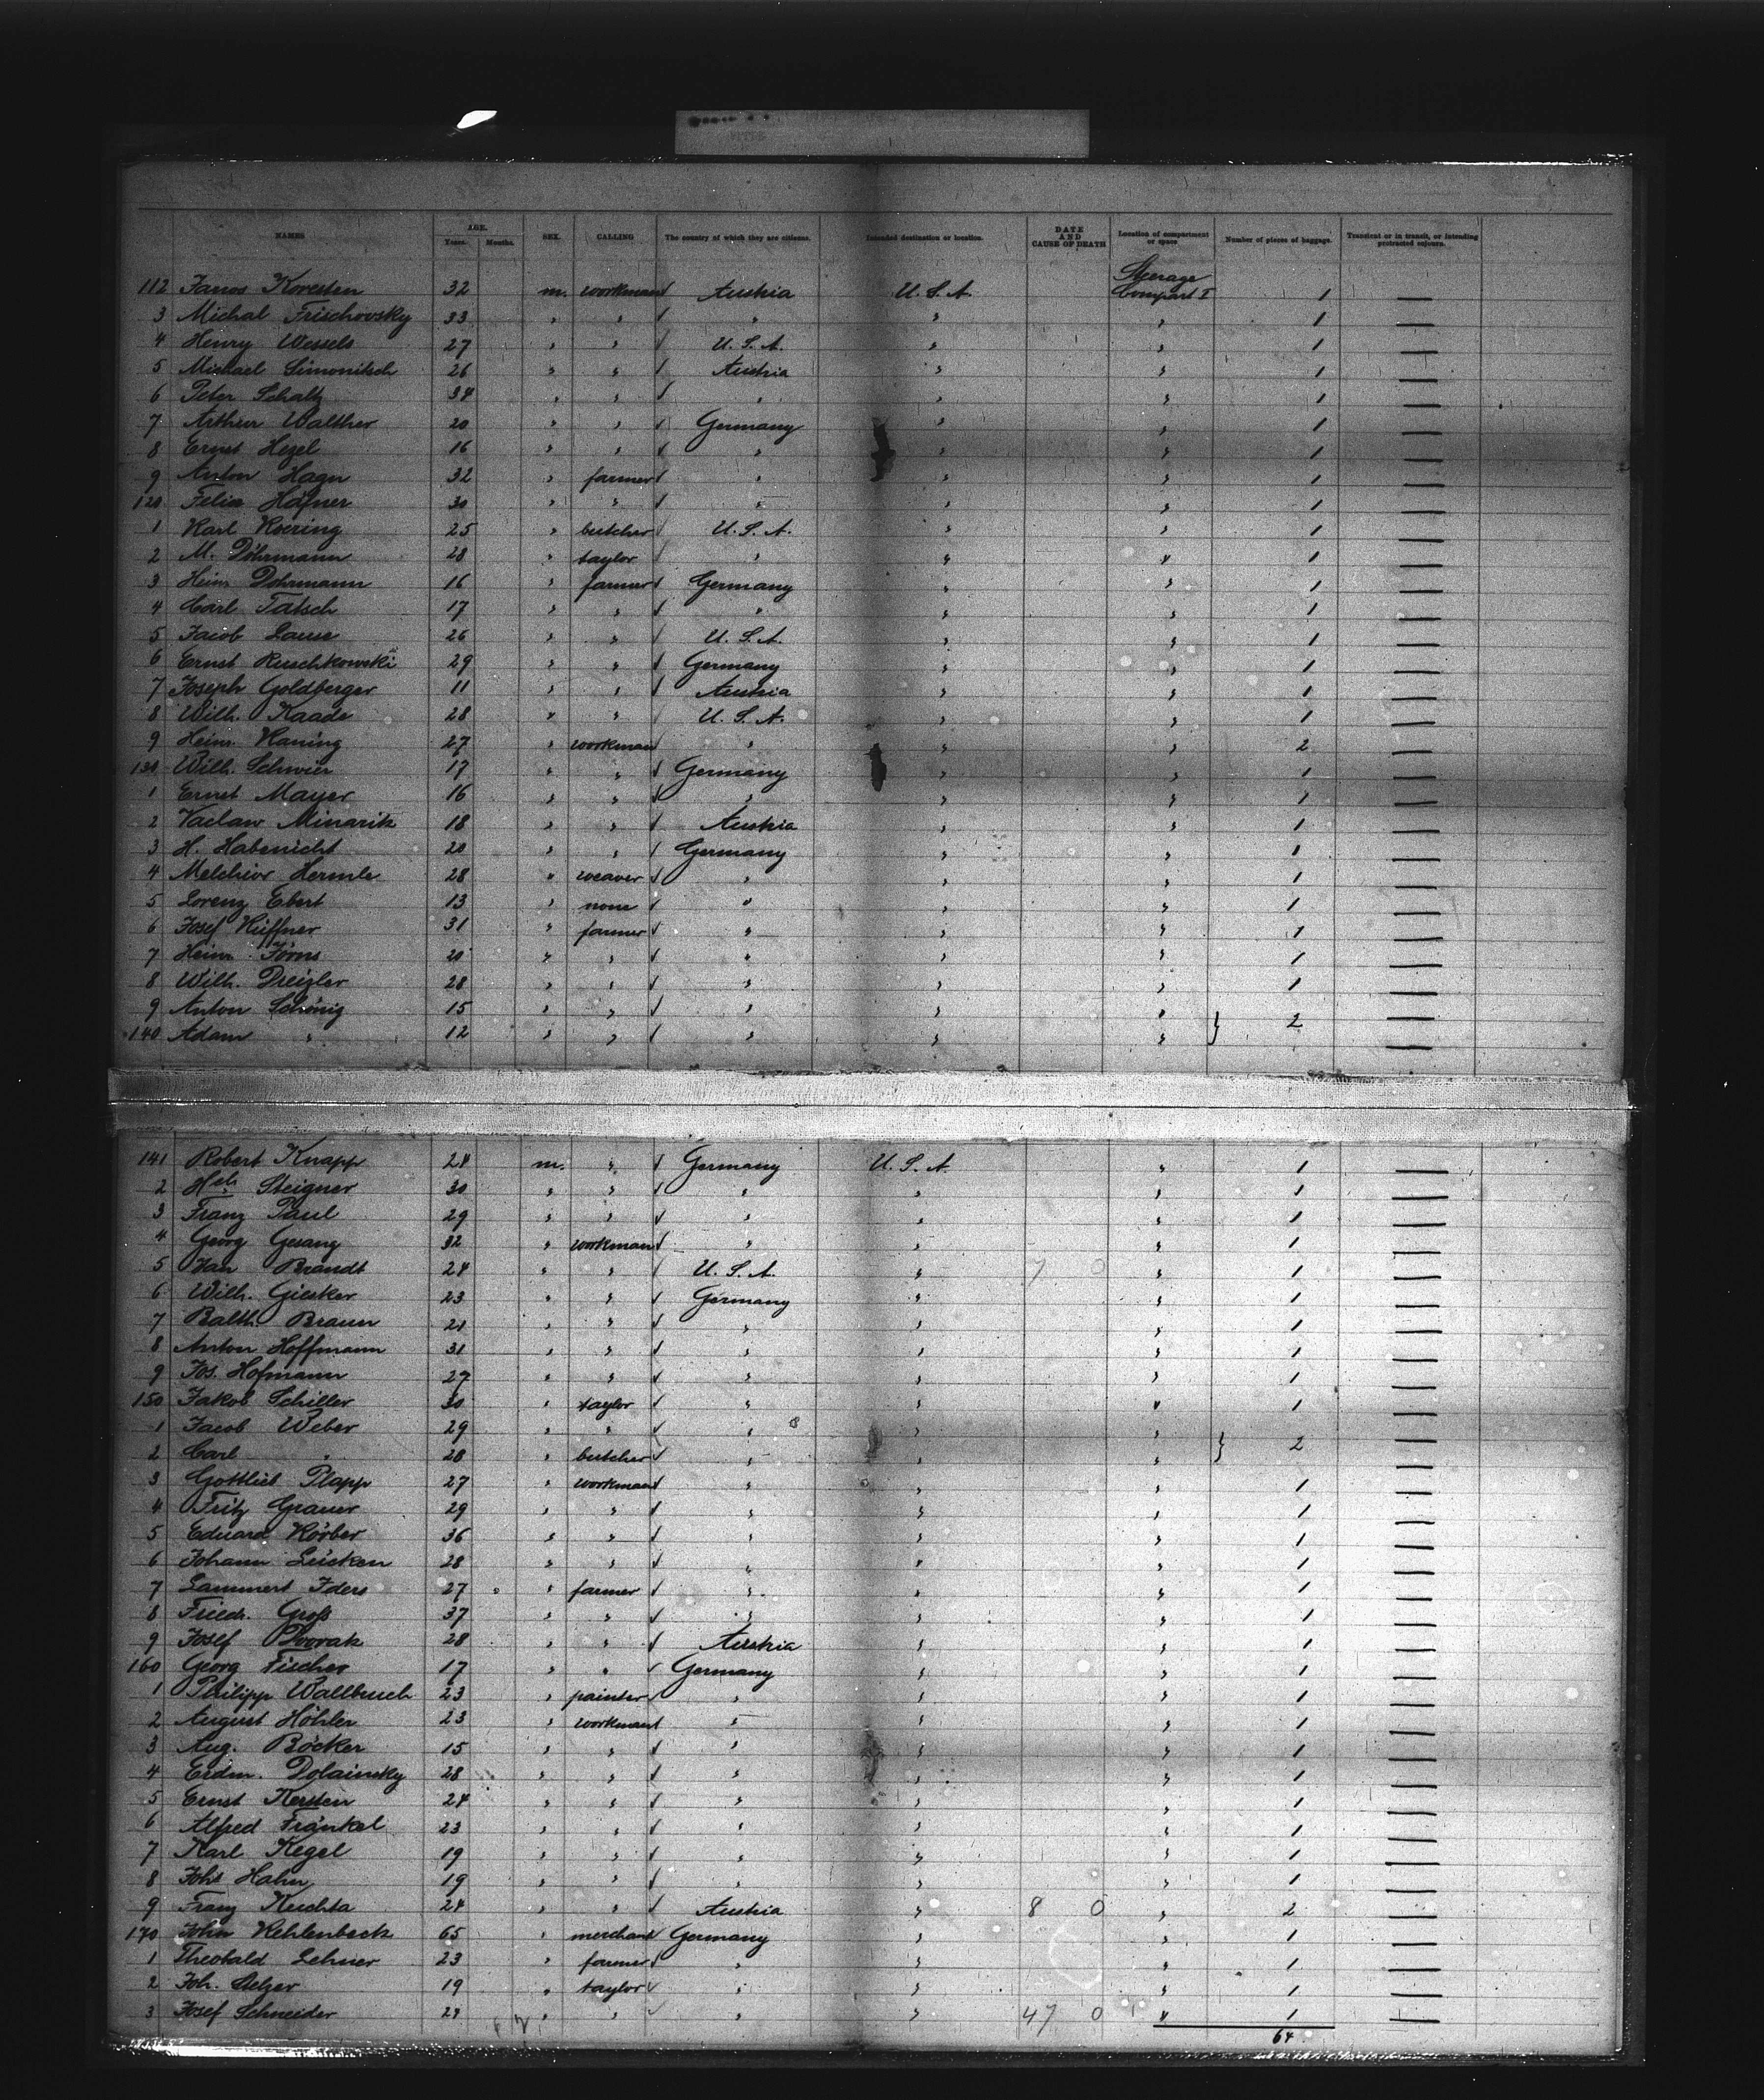 NAMES AGE. Years. Months. SEX. CALLING The country of which they are citizens. Intended destination or location. DATE AND CAUSE OF DEATH Location of compartment or space Number of pieces of baggage. Transient or in transit, or intending protracted sojourn.
Steerage
112 Janos 32 m. workman Austria U. S. A. Compart I 1 —
3 Michal Frischovsky 33 " " " " " 1 —
4 Henry Wessels 27 " " U. S. A. " " 1 —
5 Michael Simonitsch 26 " " Austria " " 1 —
6 Peter Schaltz 34 " " " " " 1 —
7 Arthur Walther 20 " " Germany " " 1 —
8 Ernst Hezel 16 " " " " " 1 —
9 Anton Hagn 32 " farmer " " " 1 —
120 Felix Häfner 30 " " " " " 1 —
1 Karl Roering 25 " butcher U. S. A. " " 1 —
2 M. Döhrmann 28 " taylor " " " 1 —
3 Heinr. Dohrmann 16 " farmer Germany " " 1 —
4 Carl Tatsch 17 " " " " " 1 —
5 Jacob 26 " " U. S. A. " " 1 —
6 Ernst Ruschkowski 29 " " Germany " " 1 —
7 Joseph Goldberger 11 " " Austria " " 1 —
8 Wilh. Kaade 28 " " U. S. A. " " 1 —
9 Heinr. Haning 27 " workman " " " 2 —
130 Wilh. Schwier 17 " " Germany " " 1 —
1 Ernst Mayer 16 " " " " " 1 —
2 Vaclaw Minarik 18 " " Austria " " 1 —
3 H. Habenicht 20 " " Germany " " 1 —
4 Melchior Hermle 28 " weaver " " " 1 —
5 Lorenz Ebert 13 " none " " " 1 —
6 Josef Küffner 31 " farmer " " " 1 —
7 Heinr. Jörns 20 " " " " " 1 —
8 Wilh. Dreizler 28 " " " " " 1 —
9 Anton Schönig 15 " " " " " } 2 —
140 Adam " 12 " " " " " —
141 Robert Knapp 24 m. " Germany U. S. A. " 1 —
2 Hch. Steigner 30 " " " " " 1 —
3 Franz Paul 29 " " " " " 1 —
4 Georg Gesang 32 " workman " " " 1 —
5 Jan Brandt 24 " " U. S. A. " 7 0 " 1 —
6 Wilh. Giesker 23 " " Germany " " 1 —
7 Balth. Braun 21 " " " " " 1 —
8 Anton Hoffmann 31 " " " " " 1 —
9 Jos. Hofmann 27 " " " " " 1 —
150 Jakob Schiller 30 " taylor " " " 1 —
1 Jacob Weber 29 " " " " " } 2 —
2 Carl " 28 " butcher " " " —
3 Gottlieb Plapp 27 " workman " " " 1 —
4 Fritz Grauer 29 " " " " " 1 —
5 Eduard Körber 36 " " " " " 1 —
6 Johann Lücken 28 " " " " " 1 —
7 Lammert Iders 27 " farmer " " " 1 —
8 Friedr. Groß 37 " " " " " 1 —
9 Josef Dvorak 28 " " Austria " " 1 —
160 Georg Fischer 17 " " Germany " " 1 —
1 Philipp Wallbruch 23 " painter " " " 1 —
2 August Höhler 23 " workman " " " 1 —
3 Aug. Böcker 15 " " " " " 1 —
4 Erdm. Dolainsky 28 " " " " " 1 —
5 Ernst Kersten 24 " " " " " 1 —
6 Alfred Fränkel 23 " " " " " 1 —
7 Karl Kegel 19 " " " " " 1 —
8 Johs Hahn 19 " " " " " 1 —
9 Franz Kuchta 24 " " Austria " 8 0 " 2 —
170 John Kehlenbeck 65 " merchant Germany " " 1 —
1 Theobald Lehner 23 " farmer " " " 1 —
2 Joh. 19 " taylor " " " 1 —
3 Josef Schneider 24 " " " " 47 0 " 1 —
64